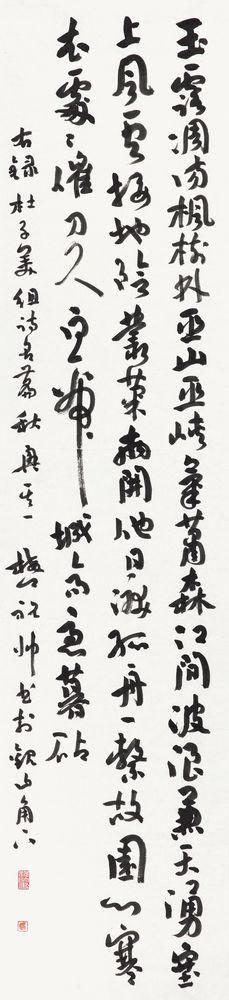 玉露凋伤枫树林巫山巫峡气萧森江间波浪兼天涌塞
上风云接地阴丛菊两开他日泪孤舟一系故园心寒
衣处处催刀尺白帝城高急暮砧
右录杜子美组诗名篇秋兴其一 祝帅书于